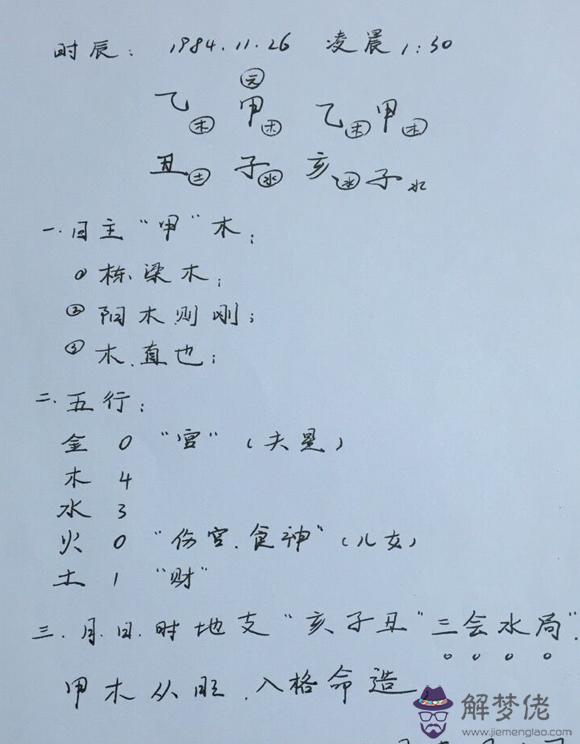 时辰： 1984.11.26 凌晨1:30
元
乙木 甲木 乙木 甲木
丑土 子水 亥水 子水
一.日主"甲"木；
①栋梁木；
②阳木则刚；
③木.直也；
二.五行：
金 0 "宫"（夫星）
木 4
水 3
火 0 "伤宫.食神"（儿女）
土 1 "财"
三.月.日.时地支"亥子丑"三会水局".
甲木从旺.入格命造
解梦佬
www.jiemenglao.com